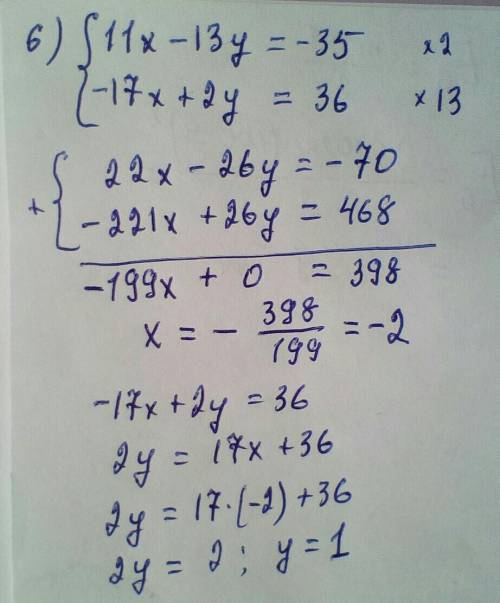 6) { 11x - 13y = -35 x2
-17x + 2y = 36 x 13
+ { 22x - 26y = -70
-221x + 26y = 468
-199x + 0 = 398
x = - 398/199 = -2
-17x + 2y = 36
2y = 17x + 36
2y = 17·(-2) + 36
2y = 2; y = 1